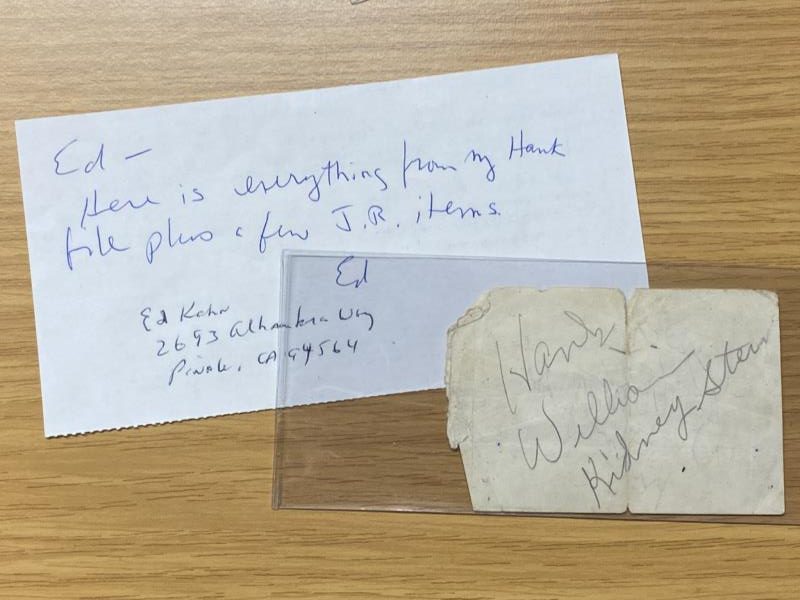 Ed —
Here is everything from my Hank
file plus a few J.R. items.
Ed
Ed Kahn
2693 Alhambra Way
Pinole, CA 94564
Hank
William
Kidney Stew